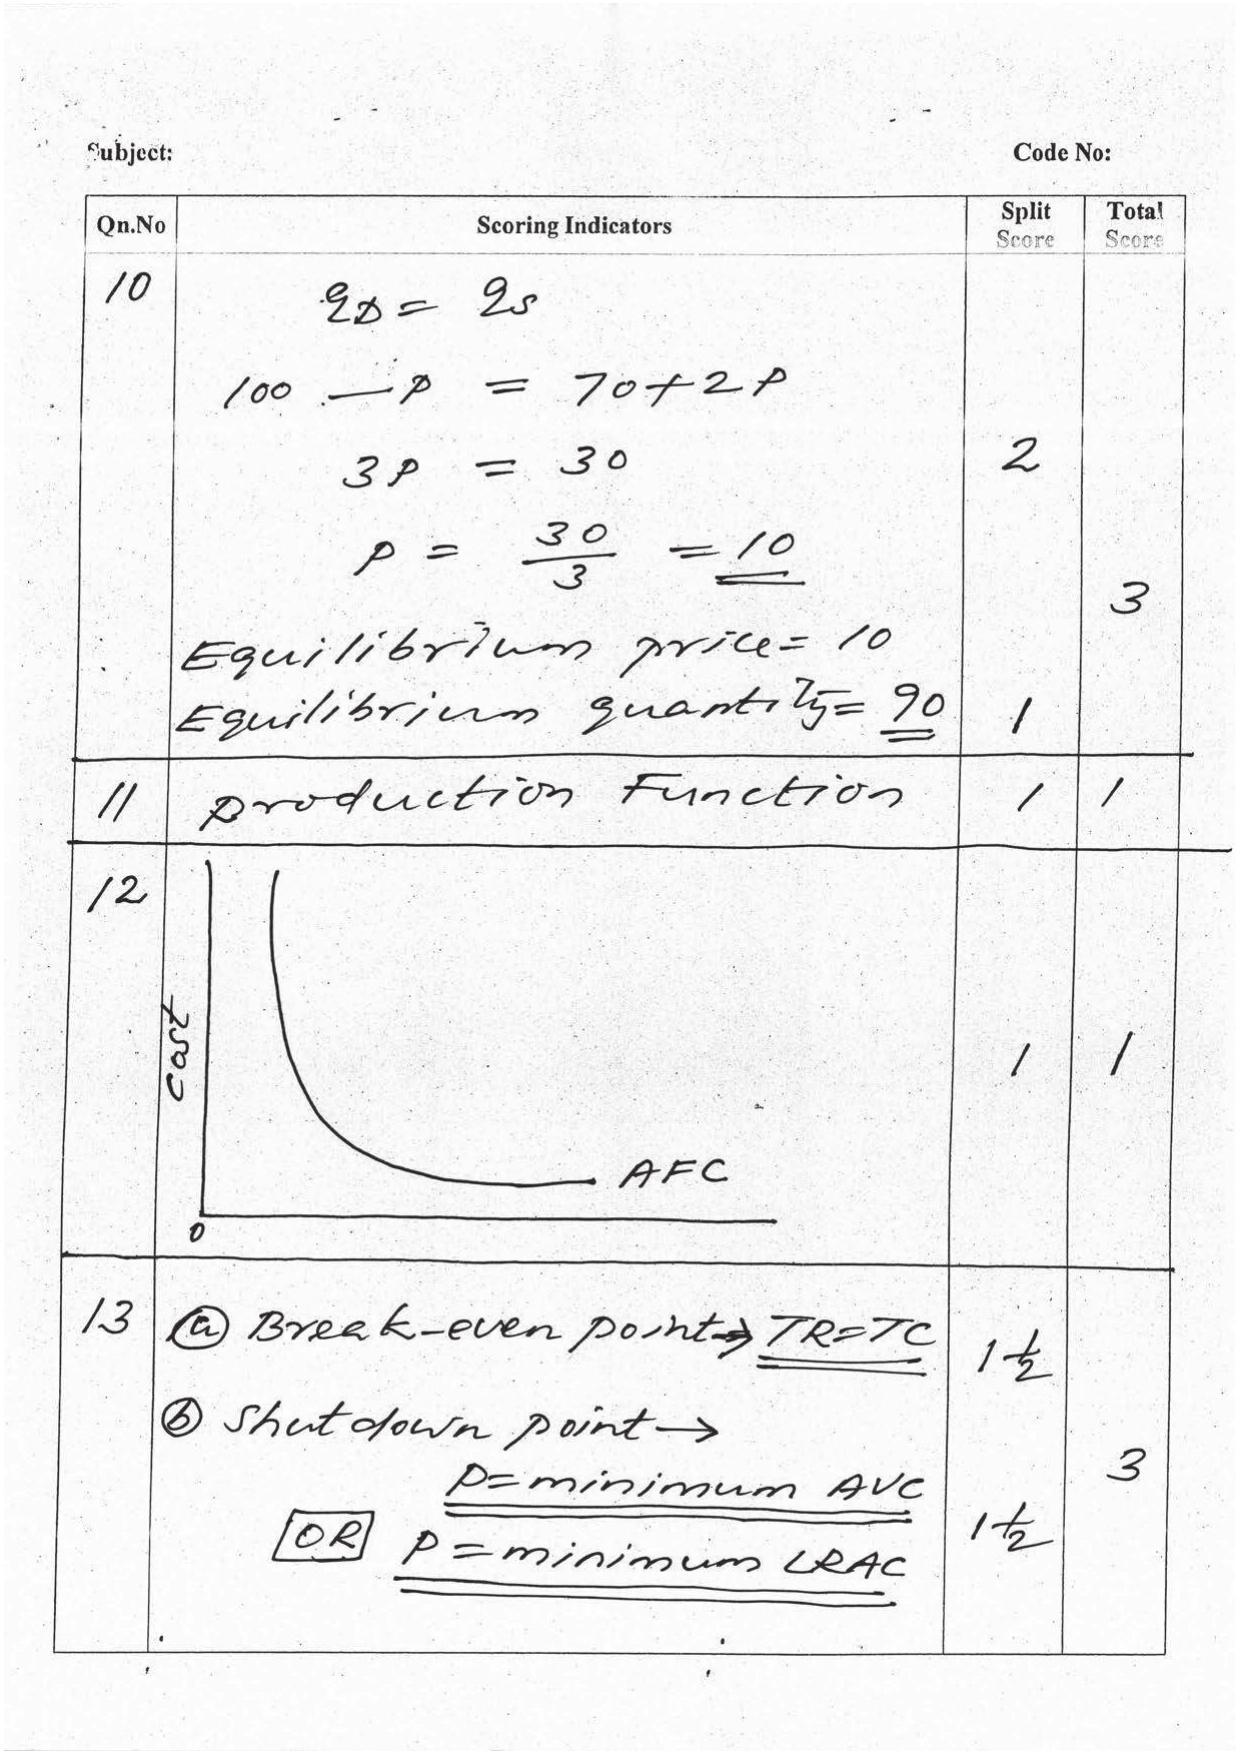 Subject:
Code No:
Qn.No Scoring Indicators Split Score Total Score
10 qD = qs
100 — P = 70+2P
3P = 30 2
P = 30/3 = 10
3
Equilibrium price = 10
Equilibrium quantity = 90 1
11 production Function 1 1
12
Cost
1 1
AFC
0
13 (a) Break-even point → TR=TC 1 1/2
(b) Shutdown point →
P=minimum AVC 3
OR P=minimum LRAC 1 1/2